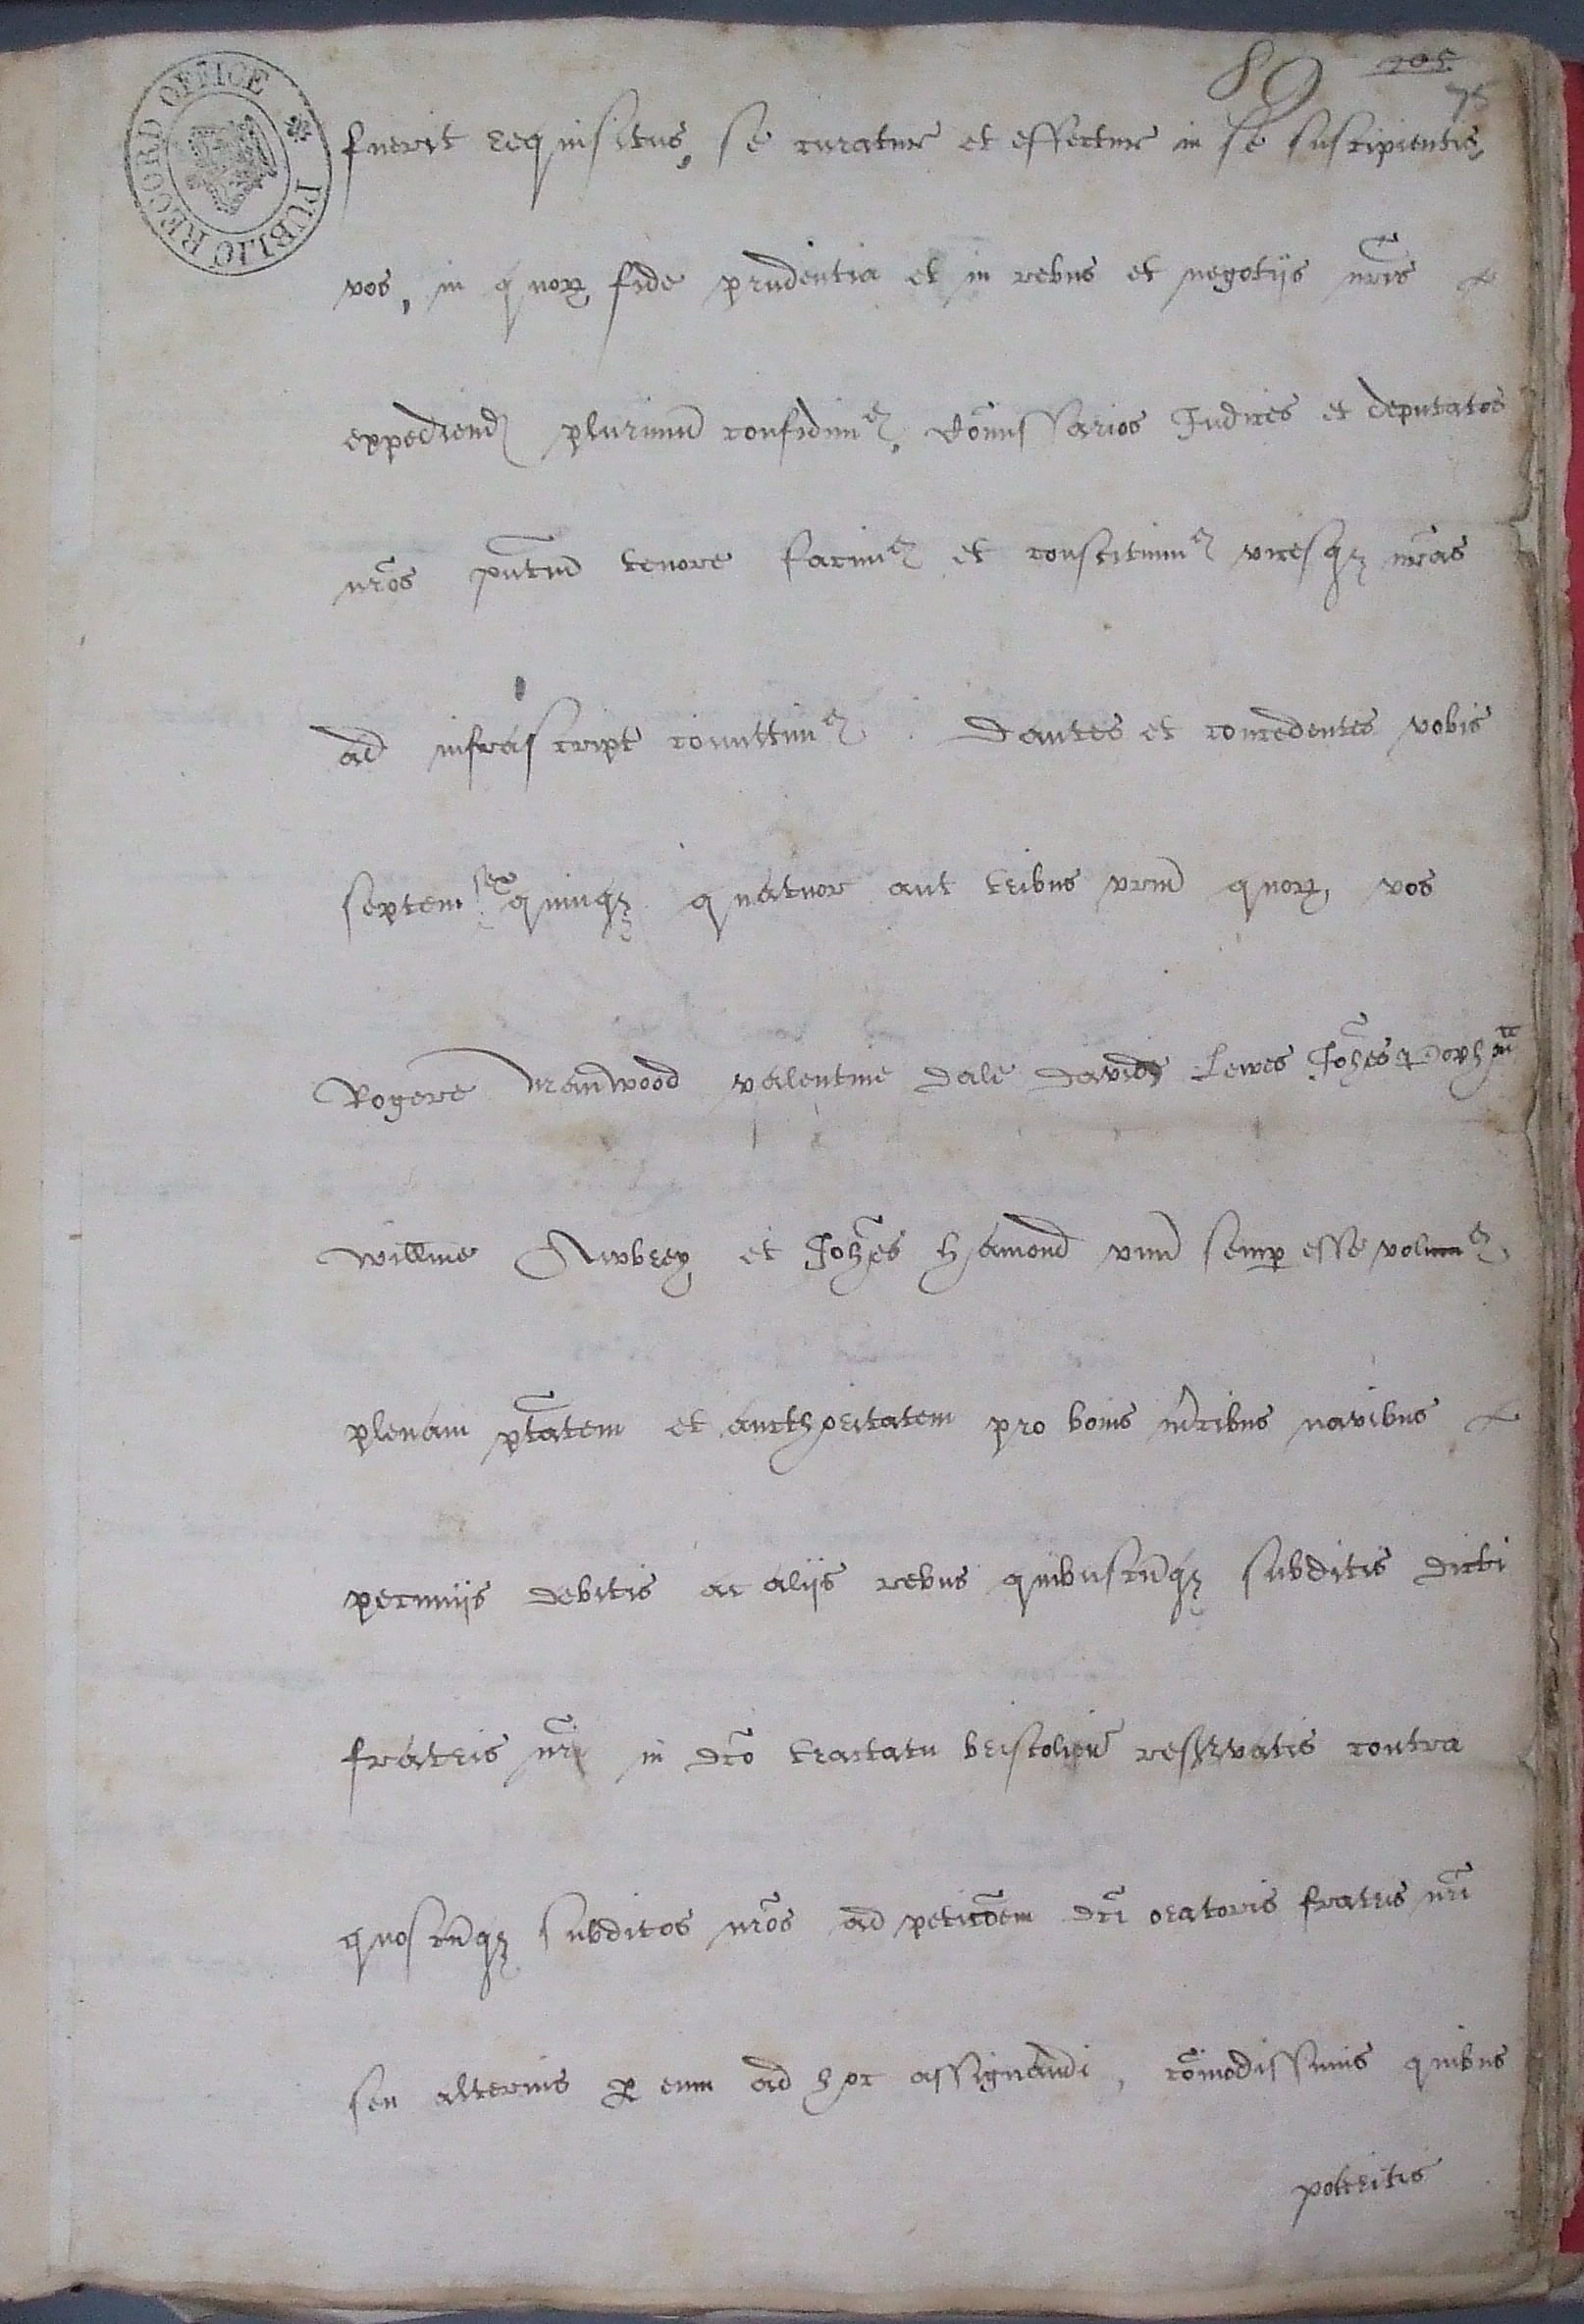 89 205
75
PUBLIC RECORD OFFICE
fuerit requisitus, se curatur et effectur in se suscipientis,
vos, in quor fide prudentia et in rebus et negotijs nr̃is
expediend plurimū confidim9, Com̃issarios Judices et deputatos
nr̃os pñtiū tenore facim9 et constituim9 vicesq nr̃as
ad infrascript com̃ittim9. Dantes et concedentes vobis
septem sex quinq quatuor aut tribus vrm̄ quor, vos
Rogere Manwood Valentine Dale David Lewes Joh̃es
Will̃me Awbrey et Joh̃es Hamond vnū semp esse volum9,
plenam p̃tatem et aucthoritatem pro bonis m̃cibus navibus
pecunijs debitis ac alijs rebus quibuscūq subditis dicti
fratris nr̃i in dc̃o tractatu bristolien̄ reservatis contra
quoscūq subditos nr̃os ad petic̃oem dc̃i oratoris fratris nr̃i
seu alterius p eum ad hoc assignandi, com̃odissimis quibus
poteritis